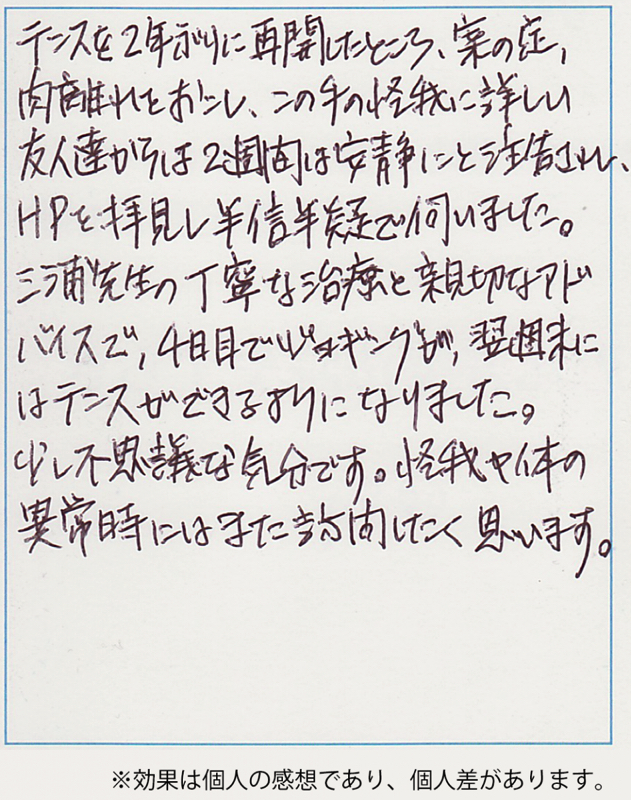 テニスを2年ぶりに再開したところ、案の定、
肉離れをおこし、この手の怪我に詳しい
友人達からは2週間は安静にと注告され、
HPを拝見し半信半疑で伺いました。
三浦先生の丁寧な治療と親切なアド
バイスで、4日目でジョギングが、翌週末に
はテニスができるようになりました。
少し不思議な気分です。怪我や体の
異常時にはまた訪問したく思います。
※効果は個人の感想であり、個人差があります。